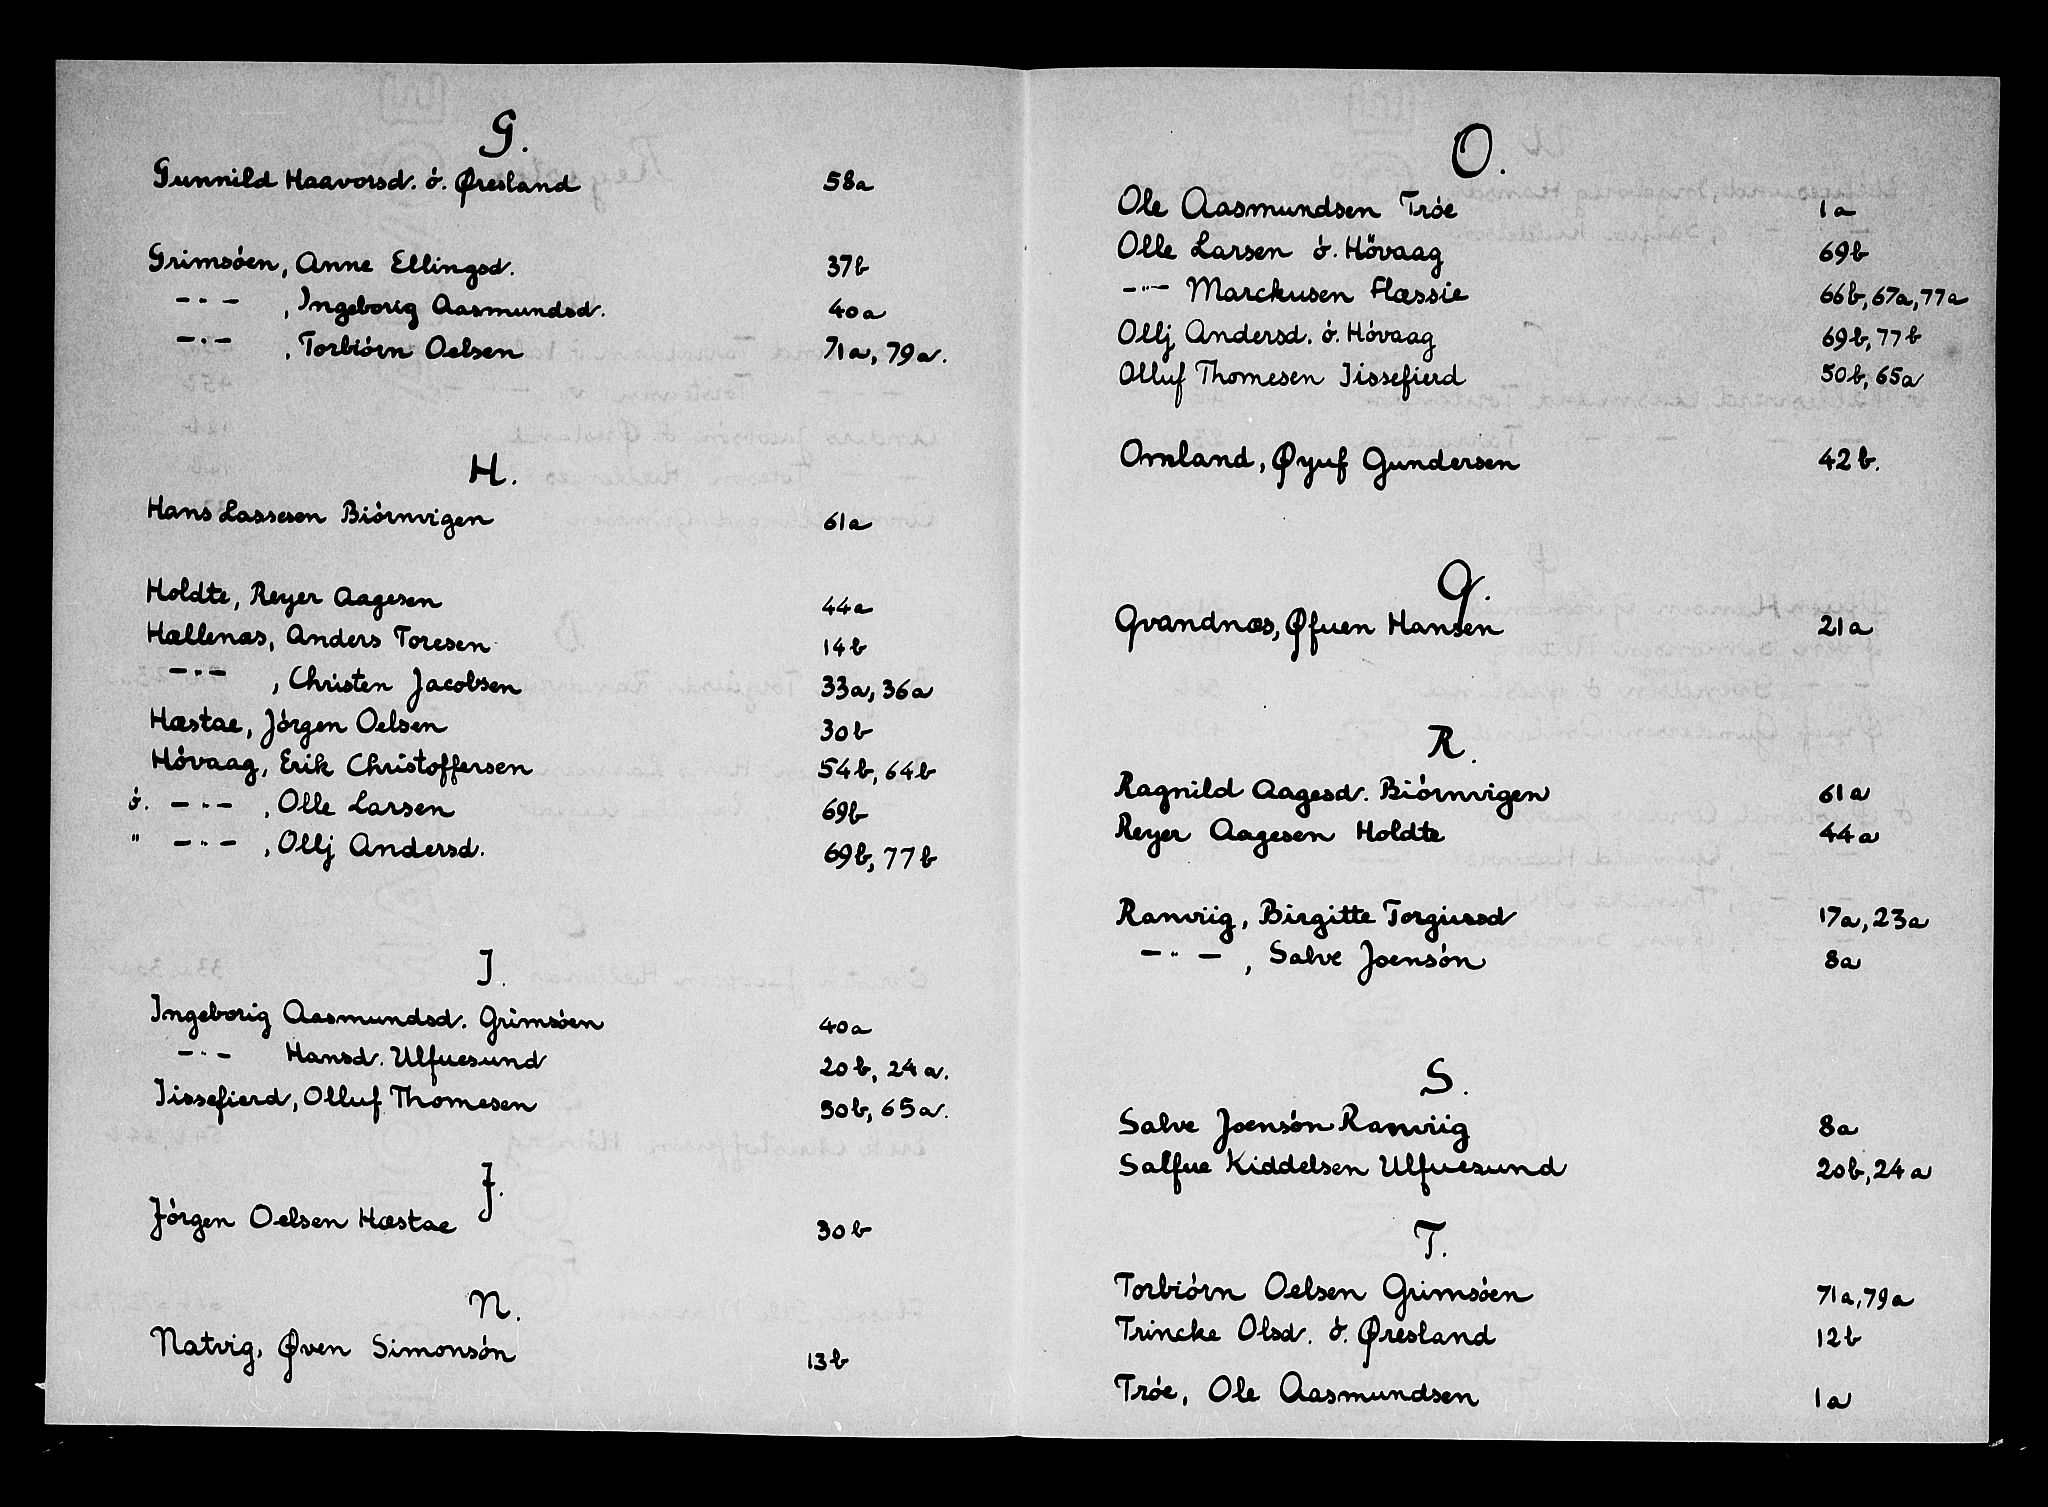 G.
Gunnild Haavorsd. ó. Øresland 58a
Grimsóen, Anne Ellingsd. 37b
—"— , Ingeborig Aasmundsd. 40a
—"— , Torbiórn Oelsen 71a, 79a.
H.
Hans Lassesen Biórnvigen 61a
Holdte, Reyer Aagesen 44a
Hællenæs, Anders Toresen 14b
—"— , Christen Jacobsen 33a, 36a
Hæstae, Jórgen Oelsen 30b
Hóvaag, Erik Christoffersen 54b, 64b
ó. —"— , Olle Larsen 69b
" —"— , Ollj Andersd. 69b, 77b
I.
Ingeborig Aasmundsd. Grimsóen 40a
—"— Hansd. Ulfuesund 20b, 24a.
Iissefierd, Olluf Thomesen 50b, 65a.
J.
Jórgen Oelsen Hæstae 30b
N.
Natvig, Øven Simonsón 13b
O.
Ole Aasmundsen Tróe 1a
Olle Larsen ó. Hövaag 69b
—"— Marckusen Flæssie 66b, 67a, 77a
Ollj Andersd. ó. Hóvaag 69b, 77b
Olluf Thomesen Iissefierd 50b, 65a
Omland, Øyuf Gundersen 42b.
Q.
Qvandnæs, Øfuen Hansen 21a
R.
Ragnild Aagesd. Biórnvigen 61a
Reyer Aagesen Holdte 44a
Ranviig, Birgitte Torgiussd 17a, 23a
—"— , Salve Joensón 8a
S.
Salve Joensón Ranviig 8a
Salfue Kiddelsen Ulfuesund 20b, 24a
T.
Torbiórn Oelsen Grimsóen 71a, 79a
Trincke Olsd. ó. Øresland 12b
Tróe, Ole Aasmundsen 1a